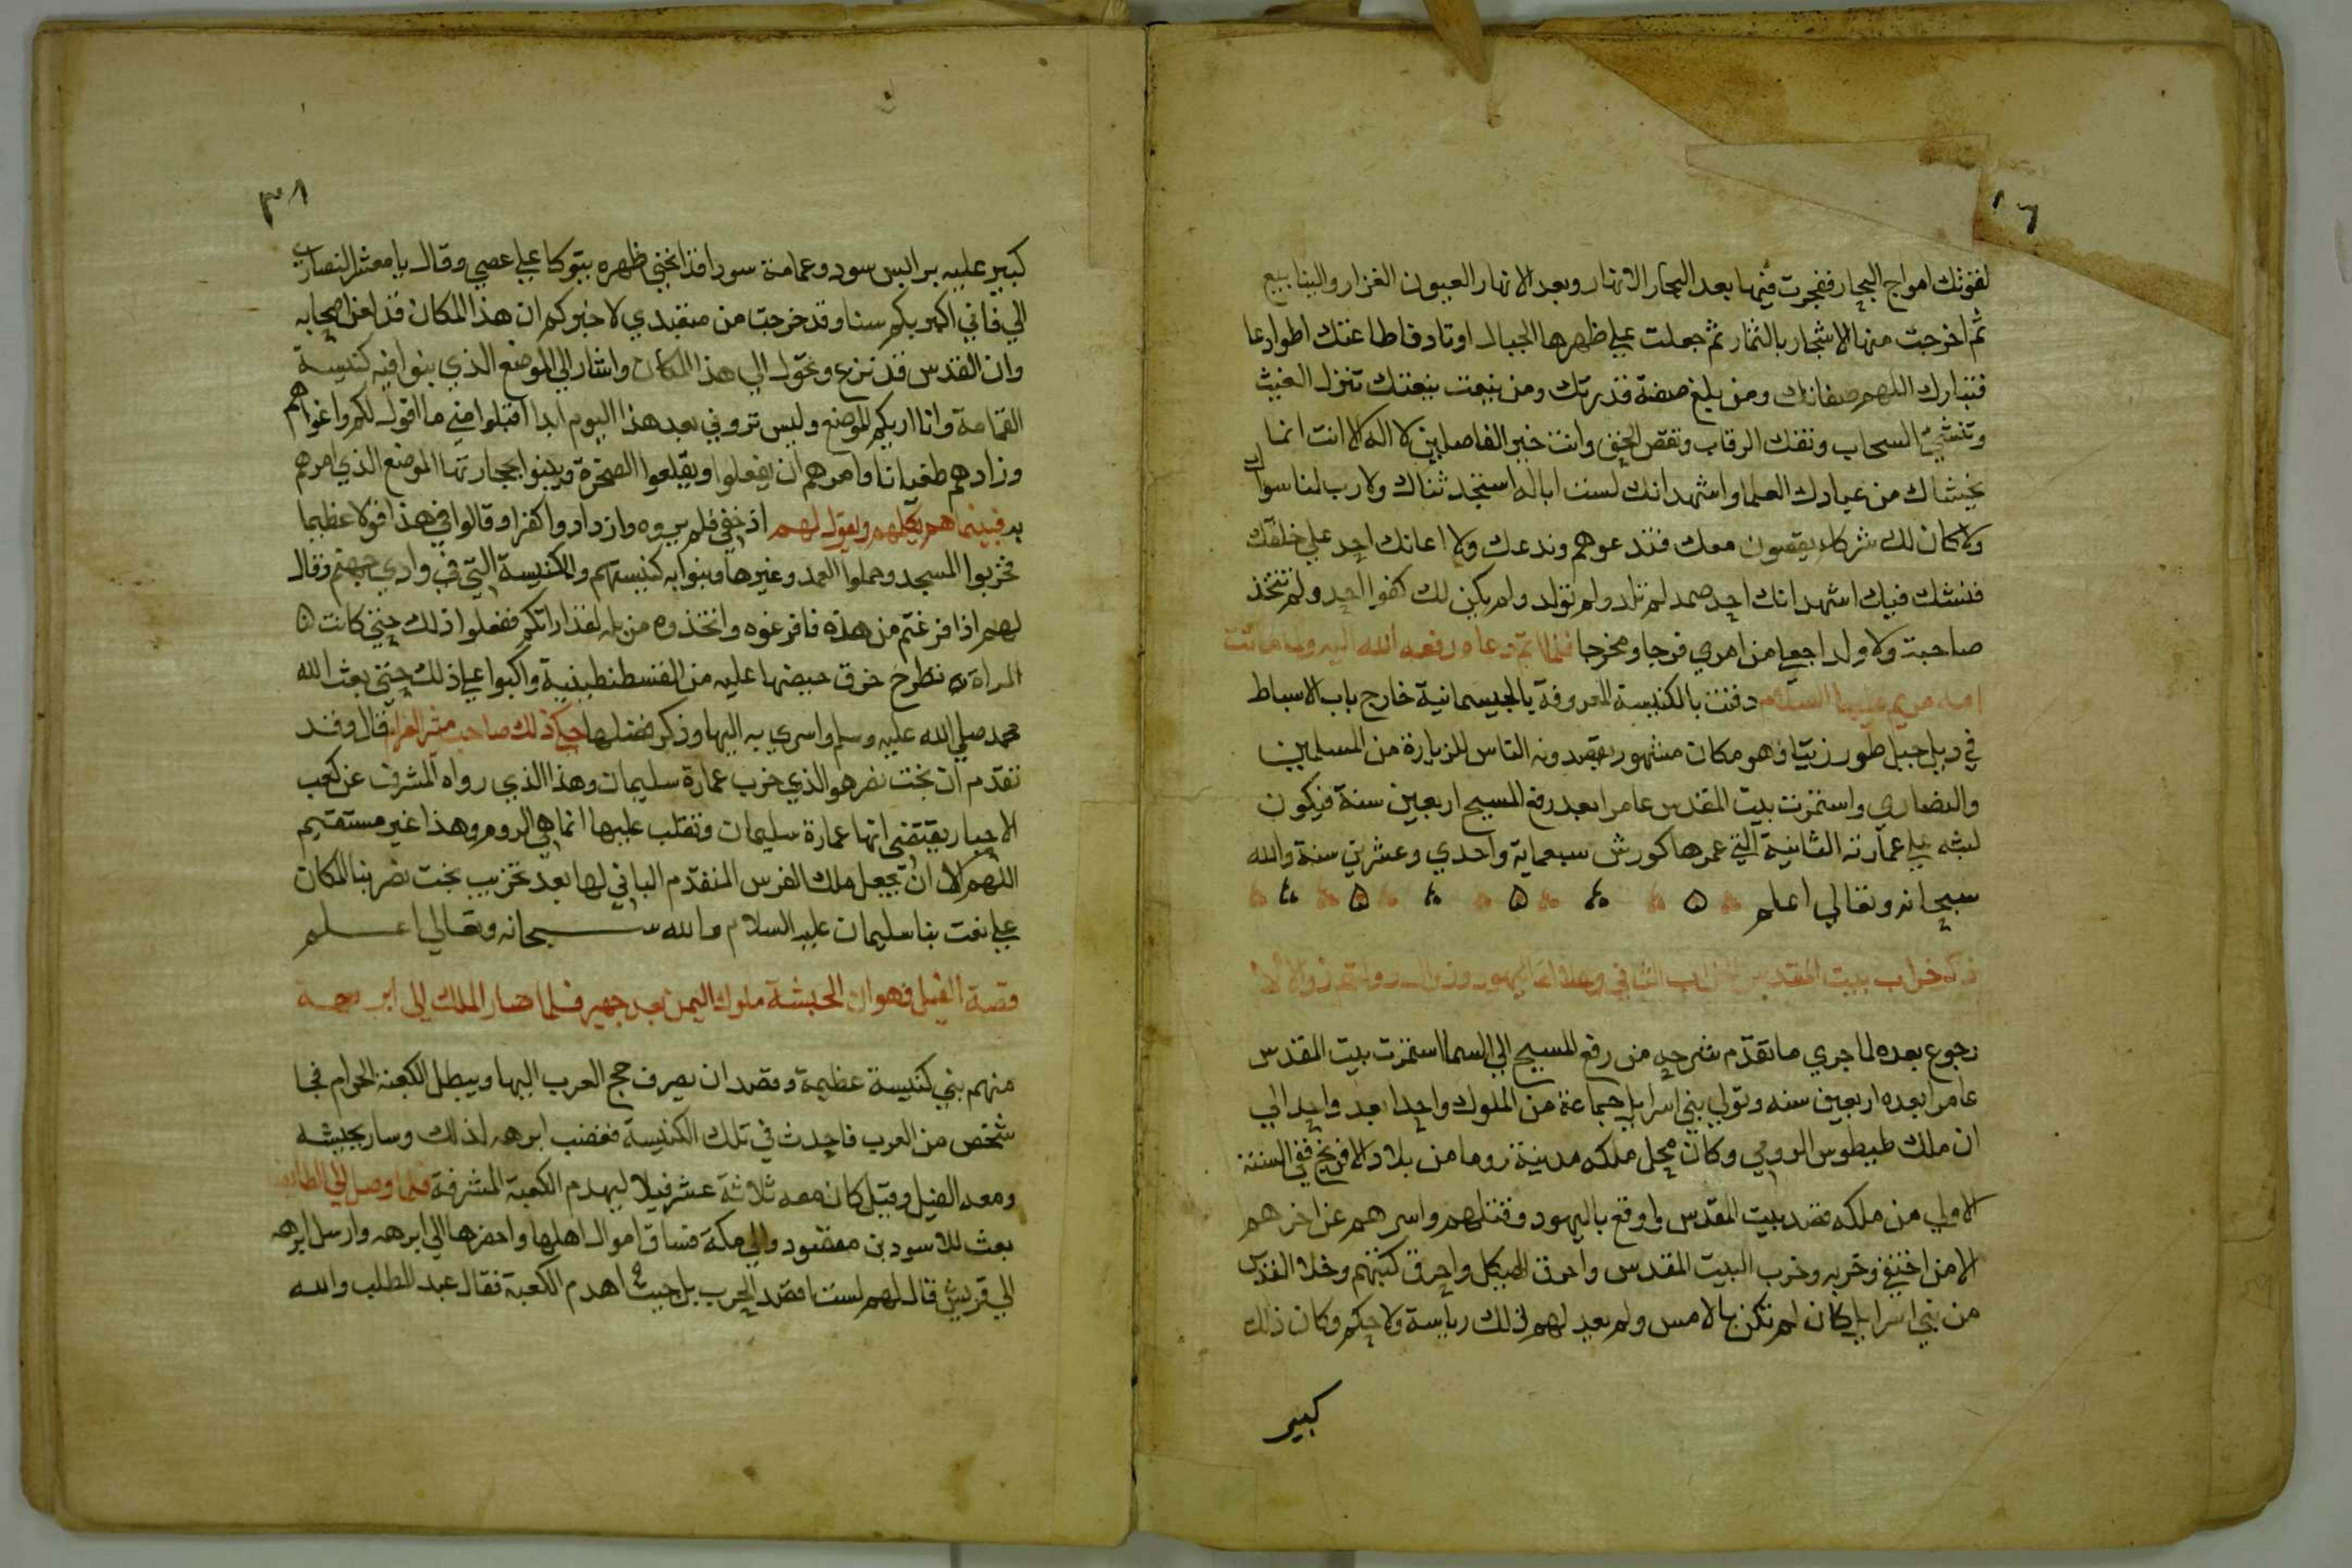 لقوتك امواج البحار ففجرت فيها بعد البحار الانهار وبعد الانهار العيون الغزار والينابيع
ثم اخرجت منها الاشجار بالثمار ثم جعلت علي ظهرها الجبال اوتاد فاطاعتك اطوادها
فتبارك اللهم صفاتك ومن يبلغ صفة قدرتك ومن ينعت بنعتك تنزل الغيث
وتنشئ السحاب وتفك الرقاب وتقص الحق وانت خير الفاصلين لا اله الا انت انما
يخشاك من عبادك العلما واشهد انك لست اباله استخدثناك ولا رب لنا سواك
ولا كان لك شركاء يقضون معك فندعوهم وندعك ولا اعانك احد علي خلقك
فنشك فيك اشهد انك احد صمد لم تلد ولم تولد ولم يكن لك كفوا احد ولم تتخذ
صاحبة ولا ولد اجعل من امري فرجا ومخرجا فلما اتم دعاه رفعه الله اليه وماتت
امه مريم عليها السلام دفنت بالكنيسة المعروفة بالجيسمانية خارج باب الاسباط
في ديل جبل طور زيتا وهو مكان مشهور يقصدونه الناس للزيارة من المسلمين
والنصاري واستمرت بيت المقدس عامرا بعد رفع المسيح اربعين سنة فيكون
لبثه علي عمارته الثانية التي عمرها كورش سبعماية واحدي وعشرين سنة والله
سبحانه وتعالي اعلم
ذكر خراب بيت المقدس الخراب الثاني وهلاك اليهود وزوال دولتهم زوالا لا
رجوع بعده لما جري ما تقدم شرحه من رفع المسيح الي السما استمرت بيت المقدس
عامرا بعده اربعين سنه وتولي بني اسرايل جماعة من الملوك واحدا بعد واحد الي
ان ملك طيطوس الرومي وكان محل ملكه مدينة روما من بلاد الافرنج ففي السنة
الاولي من ملكه قصد بيت المقدس واوقع باليهود وقتلهم واسرهم عن اخرهم
الا من اختفي وخربه وخرب البيت المقدس واحرق الهيكل واحرق كتبهم وخلا القدس
من بني اسرايل كان لم تكن بالامس ولم يعد لهم ذلك رياسة ولا حكم وكان ذلك
كبير
٣٨
كبير عليه برانس سود وعمامة سودا قد انحني ظهره يتوكا علي عصي وقال يا معشر النصاري
الي فاني اكبركم سنا وقد خرجت من متعبدي لاخبركم ان هذا المكان قد لعن اصحابه
وان القدس قد نزع وتحول الي هذا المكان واشار الي الموضع الذي بنوا فيه كنيسة
القمامة وانا اريكم الموضع وليس تروني بعد هذا اليوم ابدا اقبلوا مني ما اقول لكم واغواهم
وزادهم طغيانا وامرهم ان يفعلوا ويقلعوا الصخرة ويبنوا بحجارتها الموضع الذي امرهم
به فبينما هم يكلمهم ويقول لهم اذ خفي فلم يروه وازدادوا كفرا وقالوا في هذا قولا عظيما
فخربوا المسجد وحملوا العمد وغيرها وبنوا به كنيستهم والكنيسة التي في وادي جهنم وقال
لهم اذا فرغتم من هذه فافرغوه واتخذوه مزبله لقذاراتكم ففعلوا ذلك حتي كانت
المراة تطرح خرق حيضها عليه من القسطنطينية واكبوا علي ذلك حتي بعث الله
محمد صلي الله عليه وسلم واسري به اليها وذكر فضلها حكي ذلك صاحب مثير الغرام قال وقد
تقدم ان بخت نصر هو الذي خرب عمارة سليمان وهذا الذي رواه المشرف عن كعب
الاحبار يقتضي انها عمارة سليمان وتغلب عليها انما هي الروم وهذا غير مستقيم
اللهم الا ان يجعل ملك الفرس المتقدم الباني لها بعد تخريب بخت نصر بنا المكان
علي نعت بنا سليمان عليه السلام والله سبحانه وتعالي اعلم
قصة الفيل فهو ان الحبشة ملوك اليمن بعد حمير فلما صار الملك الي ابرهة
منهم بني كنيسة عظيمة وقصد ان يصرف حج العرب اليها ويبطل الكعبة الحرام فجا
شخص من العرب فاحدث في تلك الكنيسة فغضب ابرهه لذلك وسار بجيشه
ومعه الفيل وقيل كان معه ثلاثة عشر فيلا ليهدم الكعبة المشرفة فلما وصل الي الطايف
بعث للاسود بن مقصود والي مكة فساق اموال اهلها واحضرها الي ابرهه وارسل ابرهه
الي قريش قال لهم لست اقصد الحرب بل جيت اهدم الكعبة فقال عبد المطلب والله